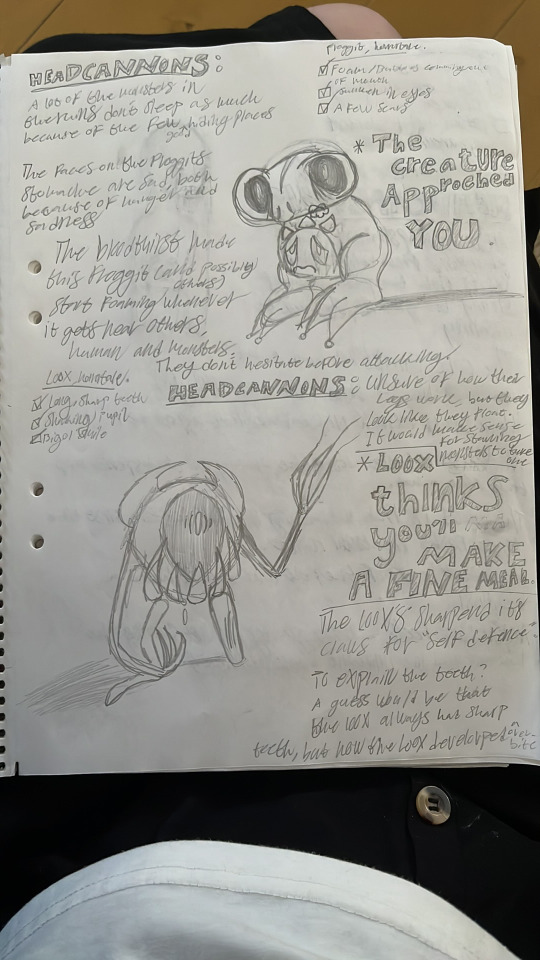 HEADCANNONS:
A lot of the monsters in
the ruins don't sleep as much
because of the few hiding places
The faces on the Froggits
Stomache are sad, both
because of hunger and
sadness
The bloodthirst made
this Froggit (and possibly
others)
start foaming whenever
it gets near others,
human and monsters.
They don't hesitate before attacking.
Froggit, horrortale.
Foam/Drool
of mouth
sunken in eyes
A few scars
* The
creature
Approched
YOU.
Loox, horrortale.
Long, sharp teeth
Pupil
HEADCANNONS: unsure of how their
Legs work, but they
Look like they float.
It would make sense
for starving
monsters to
* LOOX
thinks
you'll
MAKE
A FINE MEAL.
The loox's sharpend its
claws for "self defence"
To explain the teeth?
A guess would be that
the loox always has sharp
teeth, but now the loox developed an
over-
bite